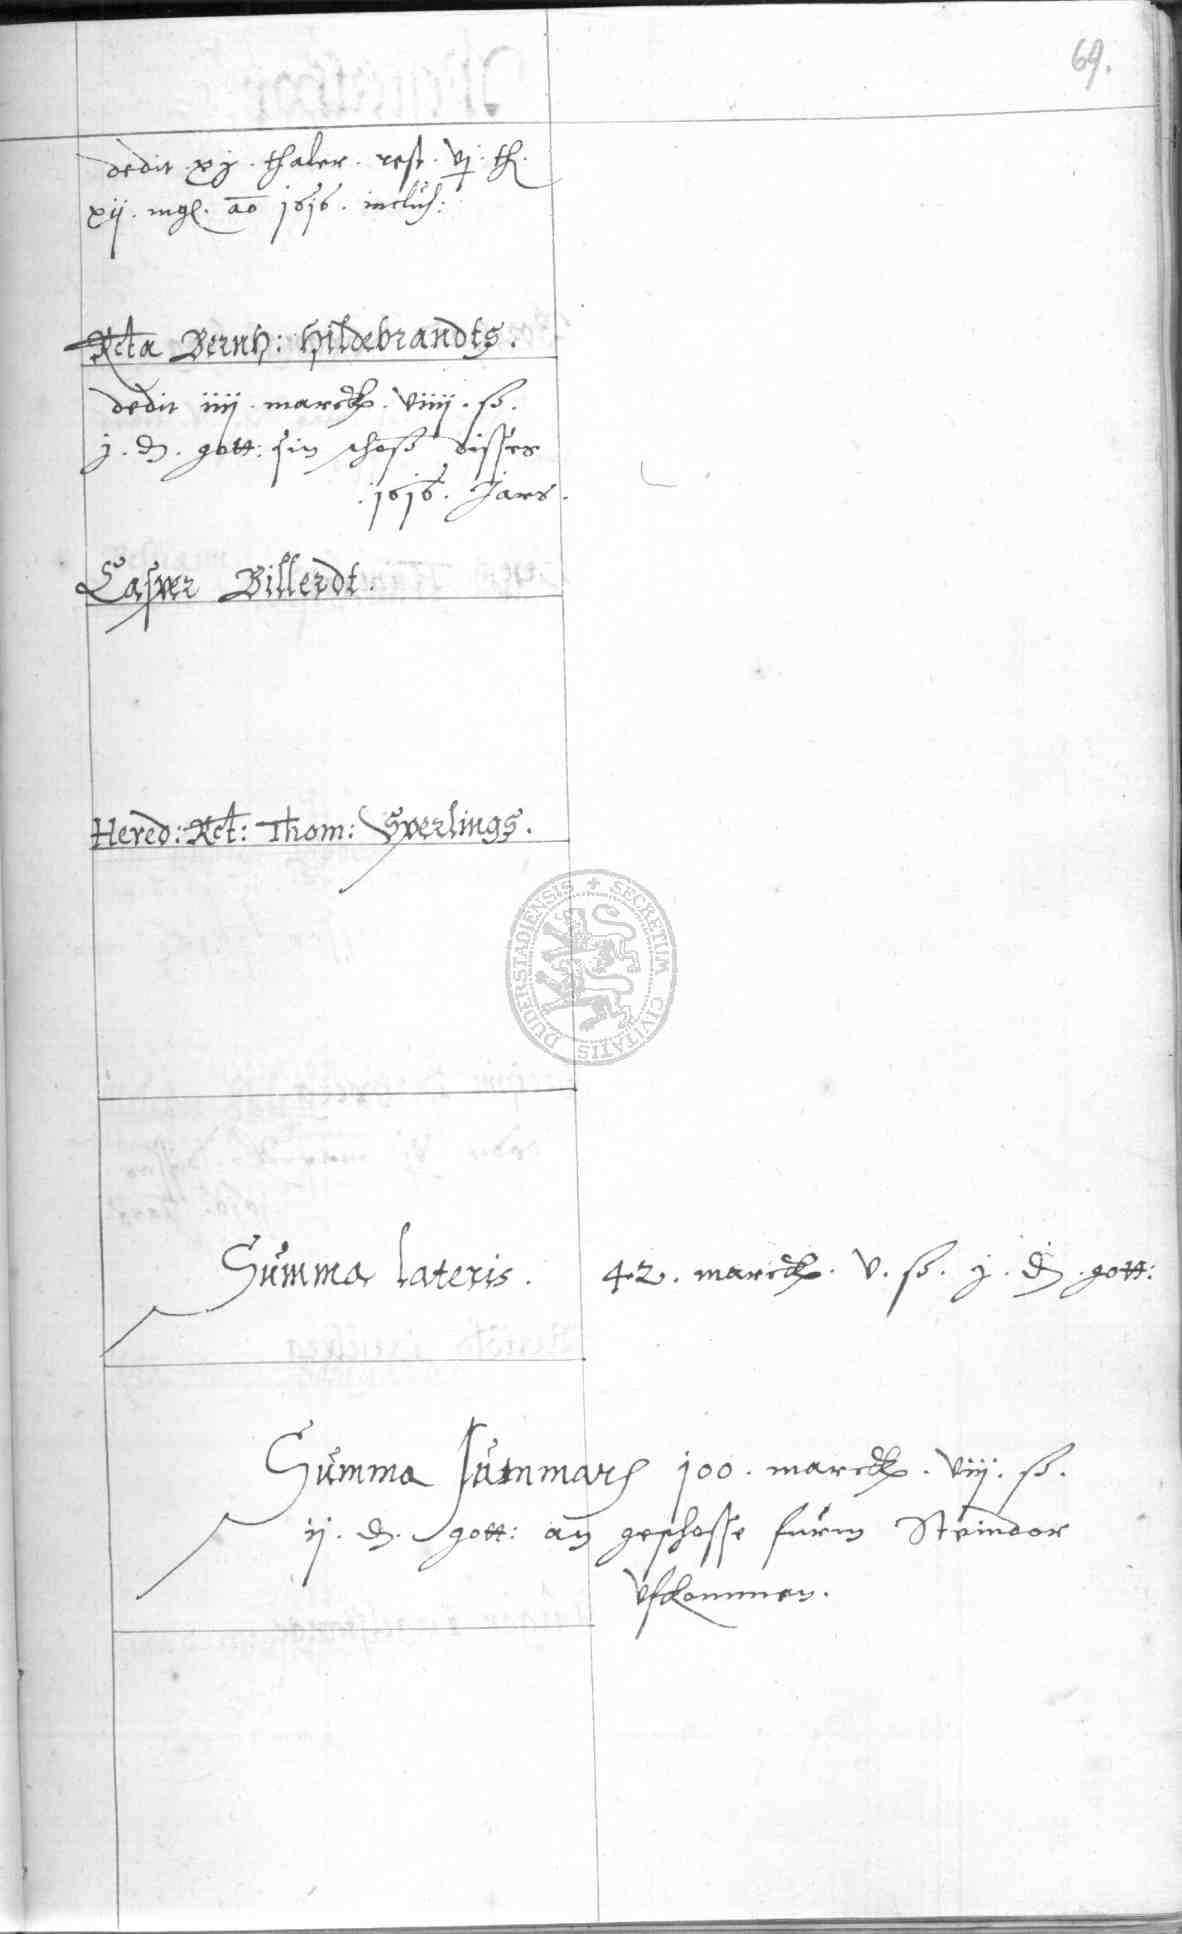 69.
dedit xj. thaler. rest. vj. th.
xij. mgl. ao 1616. inclus:
Rcta Bernh: Hildebrandts.
dedit iiij. marck. viiij. ß.
j. d. gott: sin schoß disses
.1616. Jars.
Casper Billerdt.
Hered: Rct: Thom: Sperlings.
DUDERSTADIENSIS + SECRETUM CIVITATIS
Summa lateris. 42. marck. v. ß. j. d. gott:
Summa summarum 100. marck. viij. ß.
ij. d. gott: an geschosse furm Steindor
ufkommen.